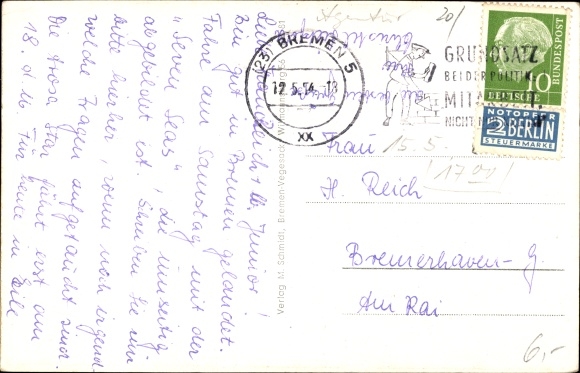 Liebe Frau Reich + Ihr Junior!
Bin gut in Bremen gelandet.
Fahre am Samstag mit der
"Seven Seas", die umseitig
abgebildet ist. Schreiben Sie mir
bitte hierher, wenn noch irgend-
welche Fragen aufgetaucht sind.
Die Arosa Star fährt erst am
18. d. M. Für heute in Eile
Agentur
20/
(23) BREMEN 5
12.5.54.-18
XX
GRUNDSATZ
BEI DER POLITIK:
MITREDEN,
NICHT
DEUTSCHE
BUNDESPOST
10
NOTOPFER
2 BERLIN
STEUERMARKE
Verlag M. Schmidt, Bremen-Vegesack
Frau
15.5.
17 00
H. Reich
Bremerhaven-G.
Am Kai
6,-